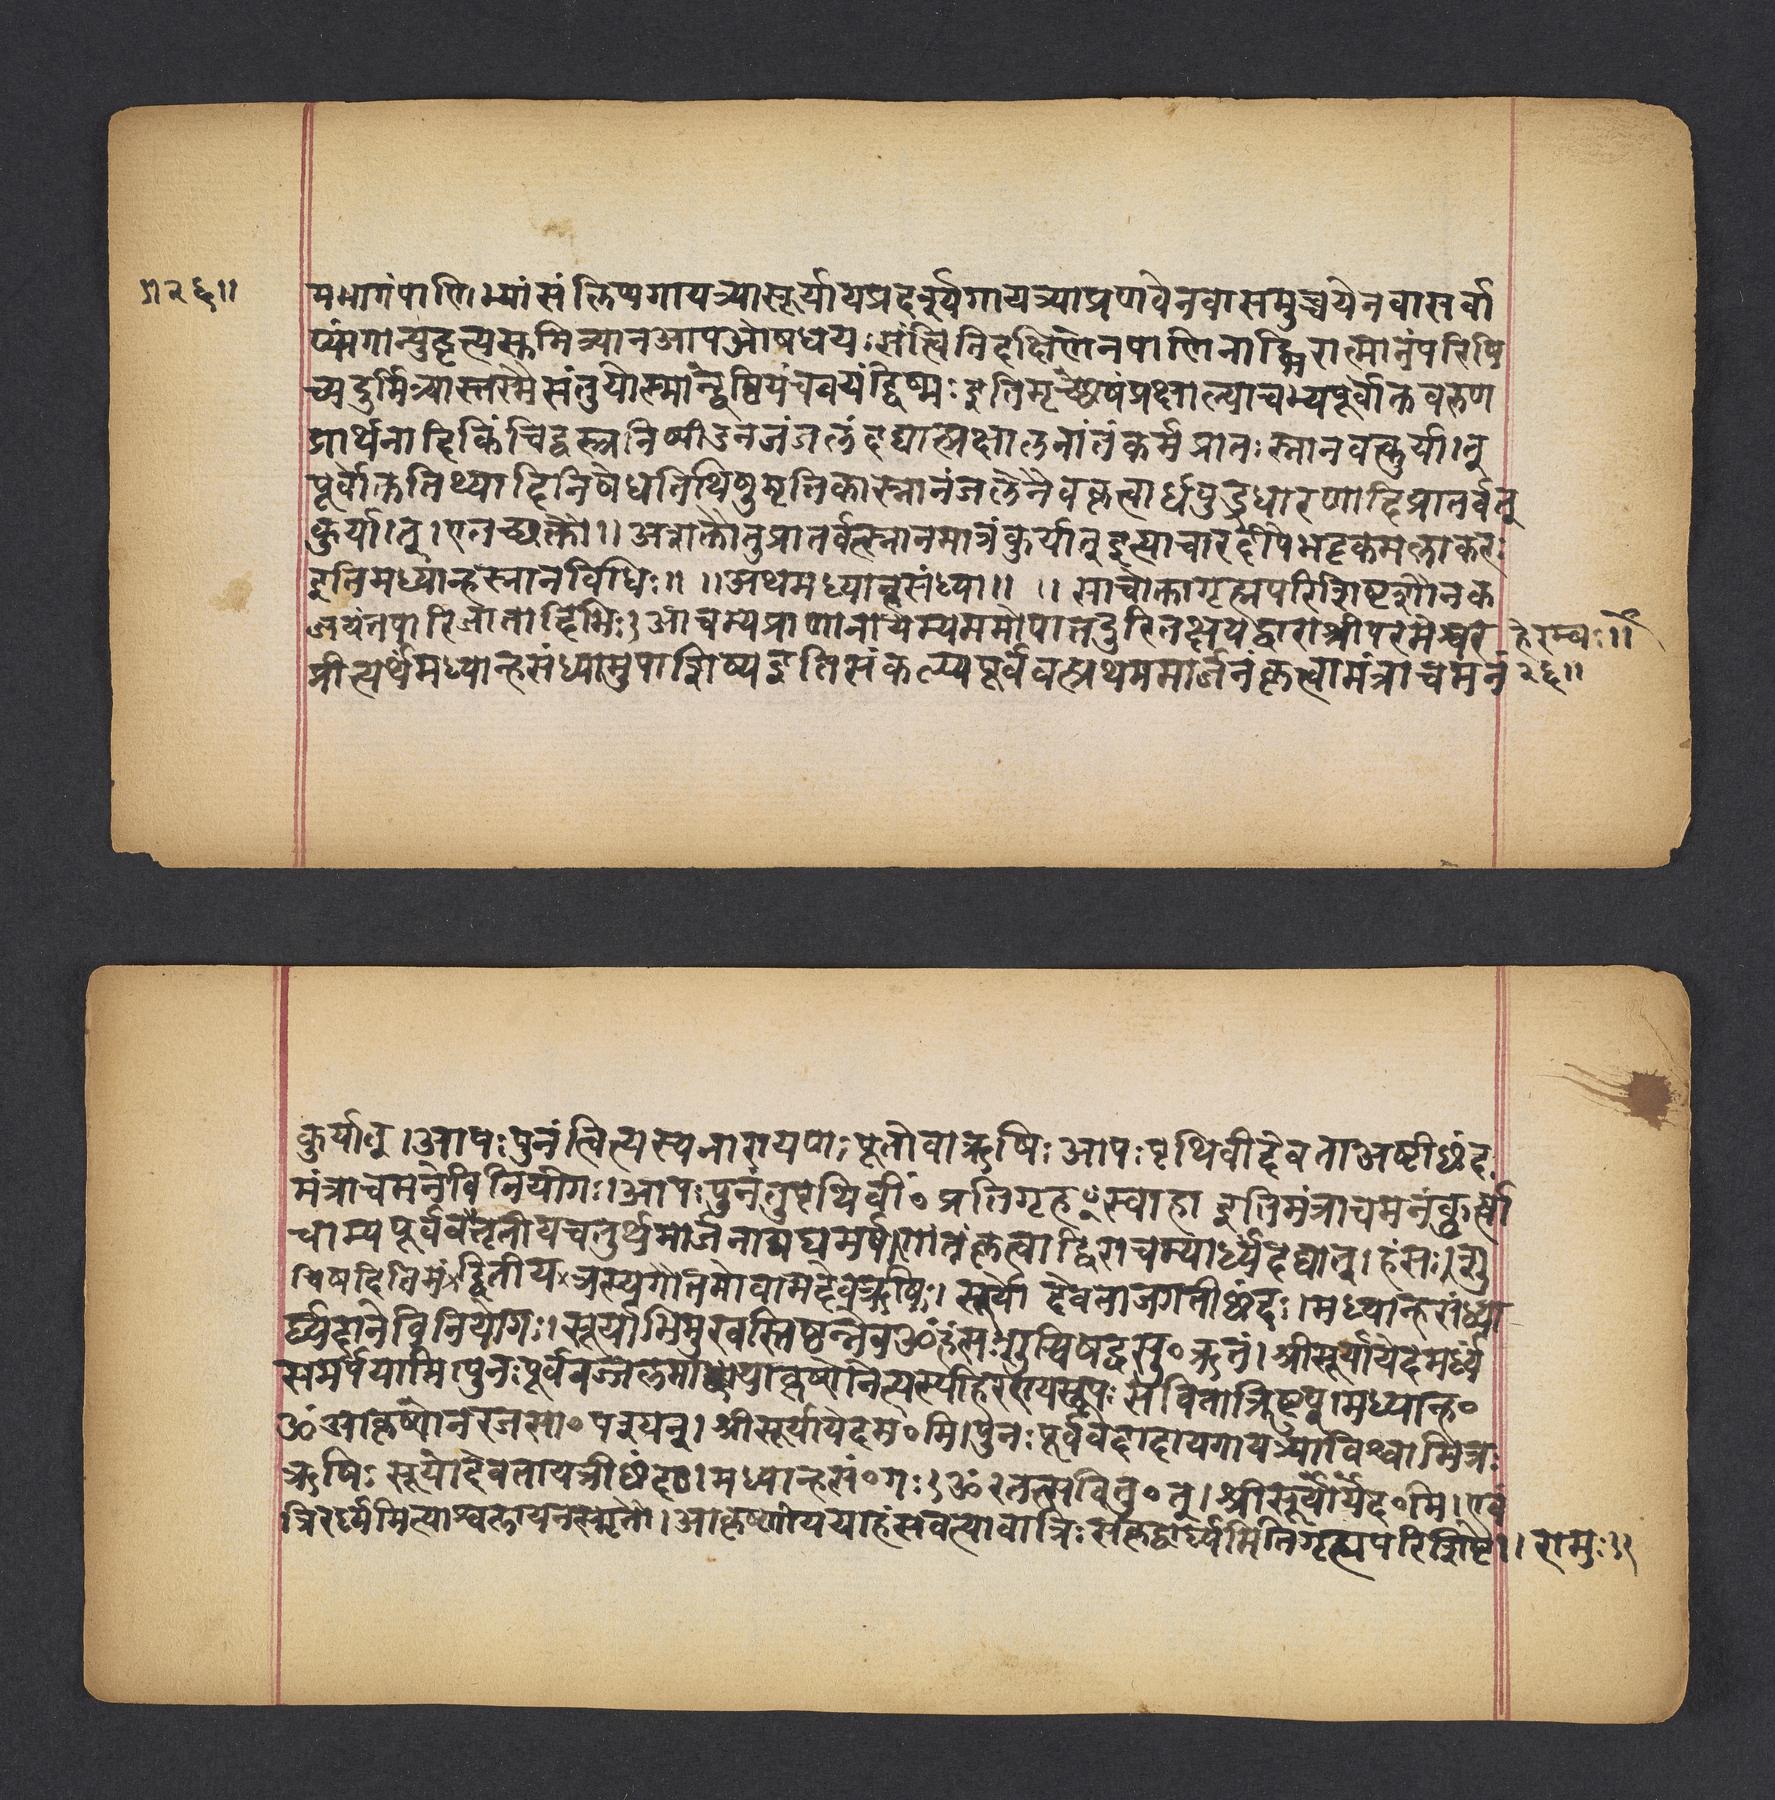 ॥२६॥
मभागंपाणिभ्यांसंलिप्यगायत्र्यासूर्यायप्रदर्श्यगायत्र्याप्रणवेनवासमुच्चयेनवासर्वा
ण्यंगान्युद्धृत्यसुमित्र्यानआपओषधयःसंत्वितिदक्षिणेनपाणिनाद्भिरात्मानंपरिषि
च्यदुर्मित्र्यास्तस्मैसंतुयोस्मान्द्वेष्टियंचवयंद्विष्मःइतिमृच्छेषंप्रक्षाल्याचम्यपूर्वोक्तवरुण
प्रार्थनादिकिंचिद्वस्त्रनिष्पीडनजंजलंदद्यात्प्रक्षालनांतंकर्मप्रातःस्नानवत्कुर्यात्
पूर्वोक्ततिथ्यादिनिषेधतिथिषुमृत्तिकास्नानंजलेनैवकृत्वार्धपुंड्रधारणादिप्रातर्वत्
कुर्यात्।एतच्छक्तौ॥अशक्तौतुप्रातर्वत्स्नानमात्रंकुर्यात्इत्याचारदीपेभट्टकमलाकरः
इतिमध्यान्हस्नानविधिः॥ ॥अथमध्यान्हसंध्या॥ ॥साचोक्तागृह्यपरिशिष्टशौनक
जयंतपारिजातादिभिः।आचम्यप्राणानायम्यममोपात्तदुरितक्षयद्वाराश्रीपरमेश्वर
हेरम्बः॥
प्रीत्यर्थंमध्यान्हसंध्यामुपाशिष्यइतिसंकल्प्यपूर्ववत्प्रथममार्जनंकृत्वामंत्राचमनं
२६॥
कुर्यात्।आपःपुनंत्वित्यस्यनारायणःपूतोवाऋषिःआपःपृथिवीदेवताअष्टीछंदः
मंत्राचमनेविनियोगः।आपःपुनंतुपृथिवीं॰प्रतिगृह॰ंस्वाहाइतिमंत्राचमनंकुर्यात्
चाम्यपूर्ववत्तृतीयचतुर्थमार्जनाद्यघमर्षणांतंकृत्वाद्विराचम्यार्घ्यंदद्यात्।हंसःशु
चिषदितिमंद्वितीयअस्यगौतमोवामदेवऋषिः।सूर्यो देवताजगतीछंदः।मध्यान्हसंध्या
र्घ्यदानेविनियोगः।सूर्याभिमुखस्तिष्ठन्नेवॐहंसःशुचिषद्वसु॰ऋतं।श्रीसूर्यायेदमर्घ्यं
समर्पयामि।पुनःपूर्ववज्जलमादायाकृष्णेनेत्यस्यहिरण्यस्तूपःसवितात्रिष्टुप्।मध्यान्ह॰
ॐआकृष्णेनरजसा॰पश्यन्।श्रीसूर्यायेदम॰मि।पुनःपूर्ववदादायगायत्र्याविश्वामित्रः
ऋषिःसूर्योदेवतायत्रीछंदः।मध्यान्हसं॰गः।ॐतत्सवितु॰त्।श्रीसूर्यायेद॰मि।एवं
त्रिरर्घ्यमित्याश्वलायनस्मृतौ।आकृष्णीययाहंसवत्यावात्रिःसकृद्वार्घ्यमितिगृह्यपरिशिष्टे।।
रामः॥